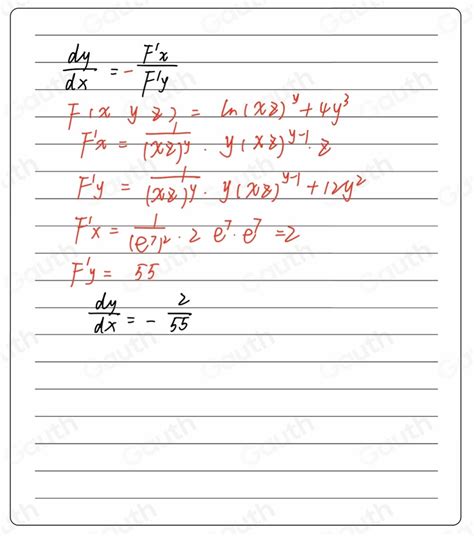 dy/dx = - F'x/F'y
F(x y z) = ln(xz)^y + 4y^3
F'x = 1/(xz)^y · y(xz)^{y-1} · z
F'y = 1/(xz)^y · y(xz)^{y-1} + 12y^2
F'x = 1/(e^7)^2 · 2 e^7 · e^7 = 2
F'y = 55
dy/dx = - 2/55